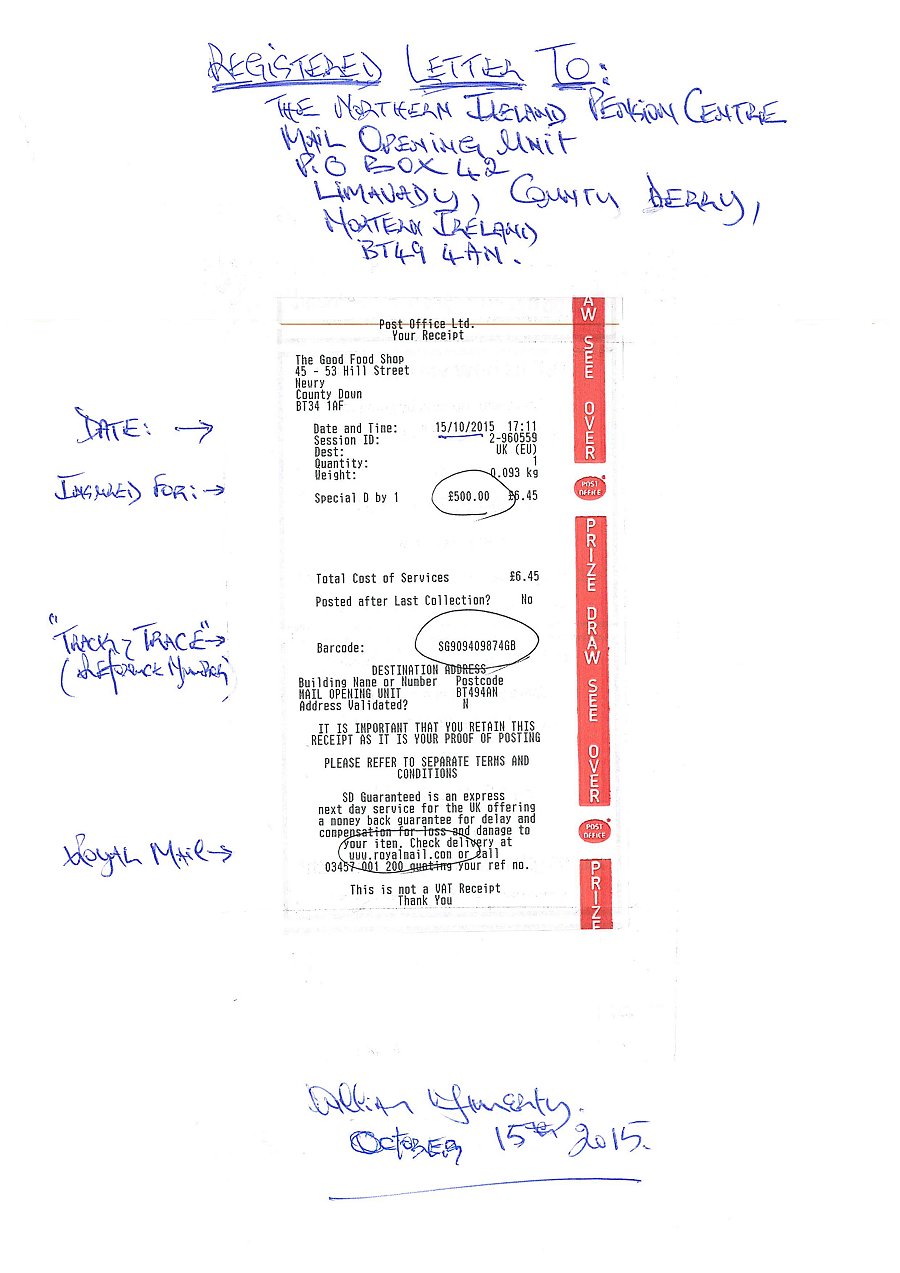 REGISTERED LETTER TO:
THE NORTHERN IRELAND PENSION CENTRE
MAIL OPENING UNIT
P.O BOX 42
LIMAVADY, COUNTY DERRY,
NORTERN IRELAND
BT49 4AN.
AW SEE OVER
Post Office Ltd.
Your Receipt
The Good Food Shop
45 - 53 Hill Street
Newry
County Down
BT34 1AF
DATE: →
Date and Time: 15/10/2015 17:11
Session ID: 2-960559
Dest: UK (EU)
Quantity: 1
Weight: 0.093 kg
INSURED FOR: →
Special D by 1 £500.00 £6.45
POST OFFICE
PRIZE DRAW SEE OVER
Total Cost of Services £6.45
Posted after Last Collection? No
"TRACK & TRACE" →
(REFERENCE NUMBER)
Barcode: SG909409874GB
DESTINATION ADDRESS
Building Name or Number Postcode
MAIL OPENING UNIT BT494AN
Address Validated? N
IT IS IMPORTANT THAT YOU RETAIN THIS
RECEIPT AS IT IS YOUR PROOF OF POSTING
PLEASE REFER TO SEPARATE TERMS AND
CONDITIONS
SD Guaranteed is an express
next day service for the UK offering
a money back guarantee for delay and
compensation for loss and damage to
your item. Check delivery at
www.royalmail.com or call
03457 001 200 quoting your ref no.
ROYAL MAIL →
POST OFFICE
PRIZE
This is not a VAT Receipt
Thank You
William
OCTOBER 15TH 2015.